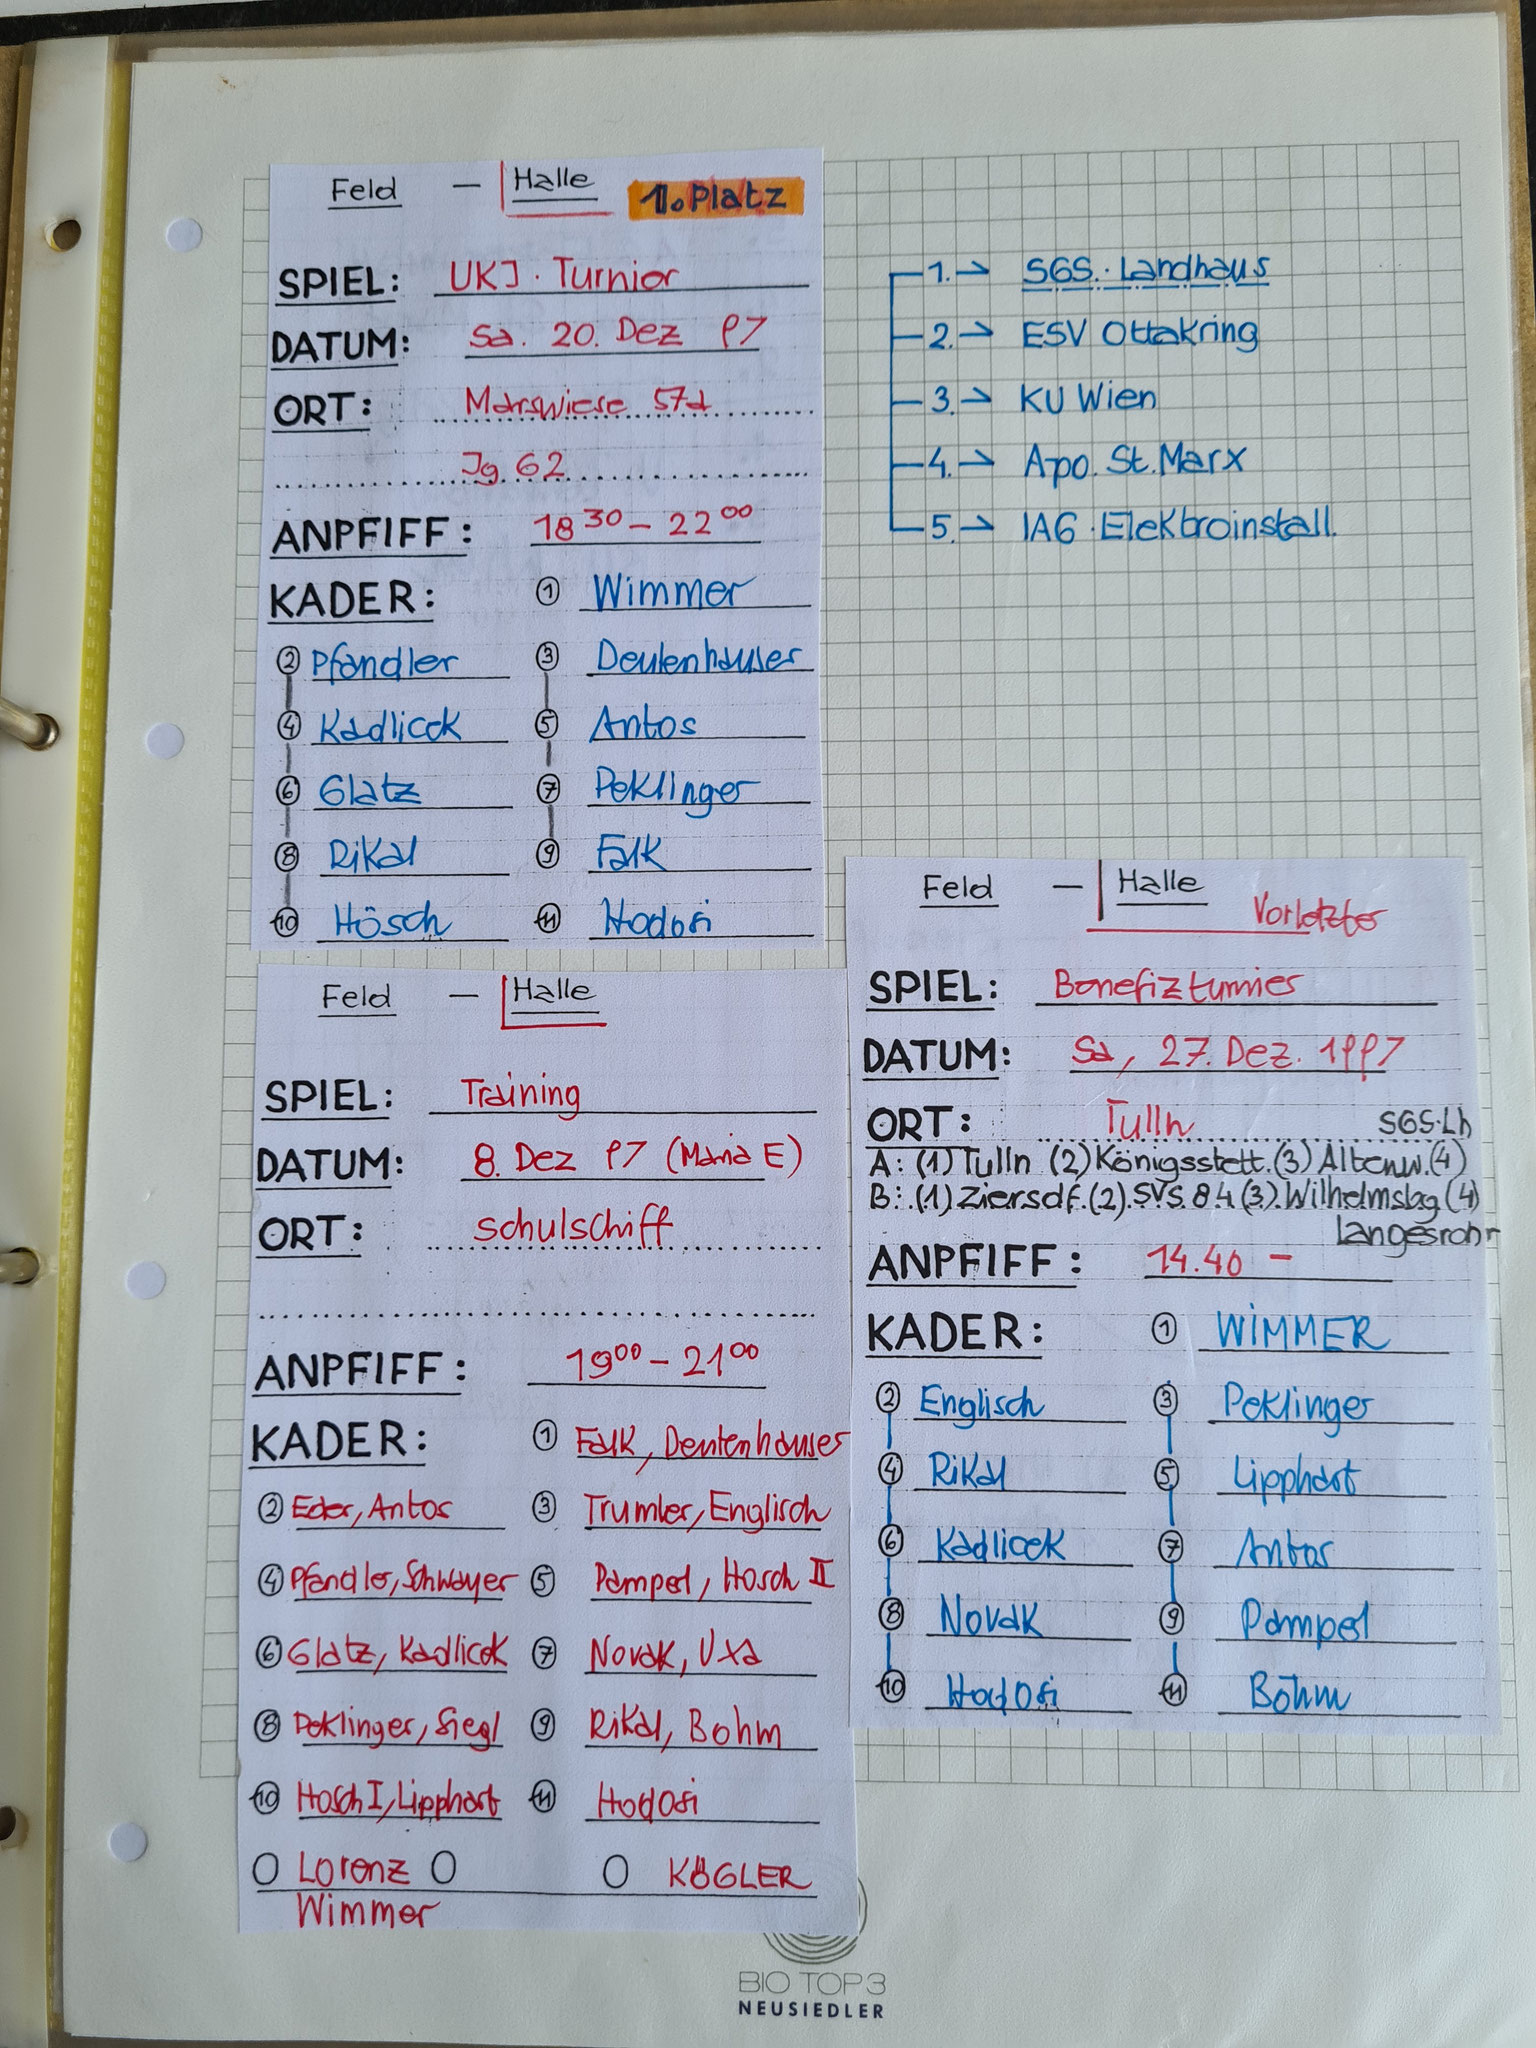 Feld – Halle 1. Platz
SPIEL: UKJ. Turnier
DATUM: Sa. 20. Dez 97
ORT: Marswiese 57d
Jg. 62
ANPFIFF: 18 30 – 22 00
KADER: 1 Wimmer
2 Pfandler 3 Deutenhauser
4 Kadlicek 5 Antos
6 Glatz 7 Peklinger
8 Rikal 9 Falk
10 Hösch 11 Hodosi
1. → SGS. Landhaus
2. → ESV Ottakring
3. → KU Wien
4. → Apo. St. Marx
5. → IAG. Elektroinstall.
Feld – Halle
SPIEL: Training
DATUM: 8. Dez 97 (Maria E)
ORT: Schulschiff
ANPFIFF: 19 00 – 21 00
KADER: 1 Falk, Deutenhauser
2 Eder, Antos 3 Trumler, Englisch
4 Pfandler, Schwayer 5 Pamperl, Hösch II
6 Glatz, Kadlicek 7 Novak, Uxa
8 Peklinger, Siegl 9 Rikal, Böhm
10 Hösch I, Lipphart 11 Hodosi
Lorenz KÖGLER
Wimmer
Feld – Halle
Vorletzter
SPIEL: Benefizturnier
DATUM: Sa, 27. Dez. 1997
ORT: Tulln SGS. Lh
A: (1) Tulln (2) Königsstett. (3) Altenw. (4)
B: (1) Ziersdf. (2) SVS 84 (3) Wilhelmsbg (4)
Langesrohr
ANPFIFF: 14.40 –
KADER: 1 WIMMER
2 Englisch 3 Peklinger
4 Rikal 5 Lipphart
6 Kadlicek 7 Antos
8 Novak 9 Pamperl
10 Hodosi 11 Böhm
BIO TOP 3
NEUSIEDLER